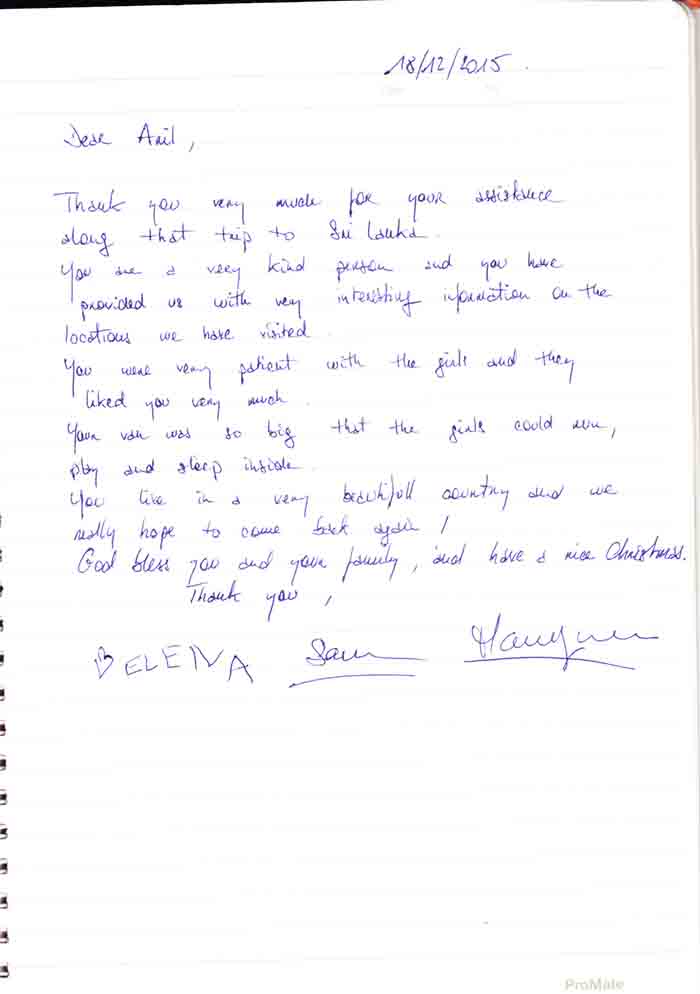 18/12/2015.
Dear Anil,
Thank you very much for your assistance
along that trip to Sri Lanka.
You are a very kind person and you have
provided us with very interesting information on the
locations we have visited.
You were very patient with the girls and they
liked you very much.
Your van was so big that the girls could run,
play and sleep inside.
You live in a very beautifull country and we
really hope to come back again!
God bless you and your family, and have a nice Christmas.
Thank you,
ProMate